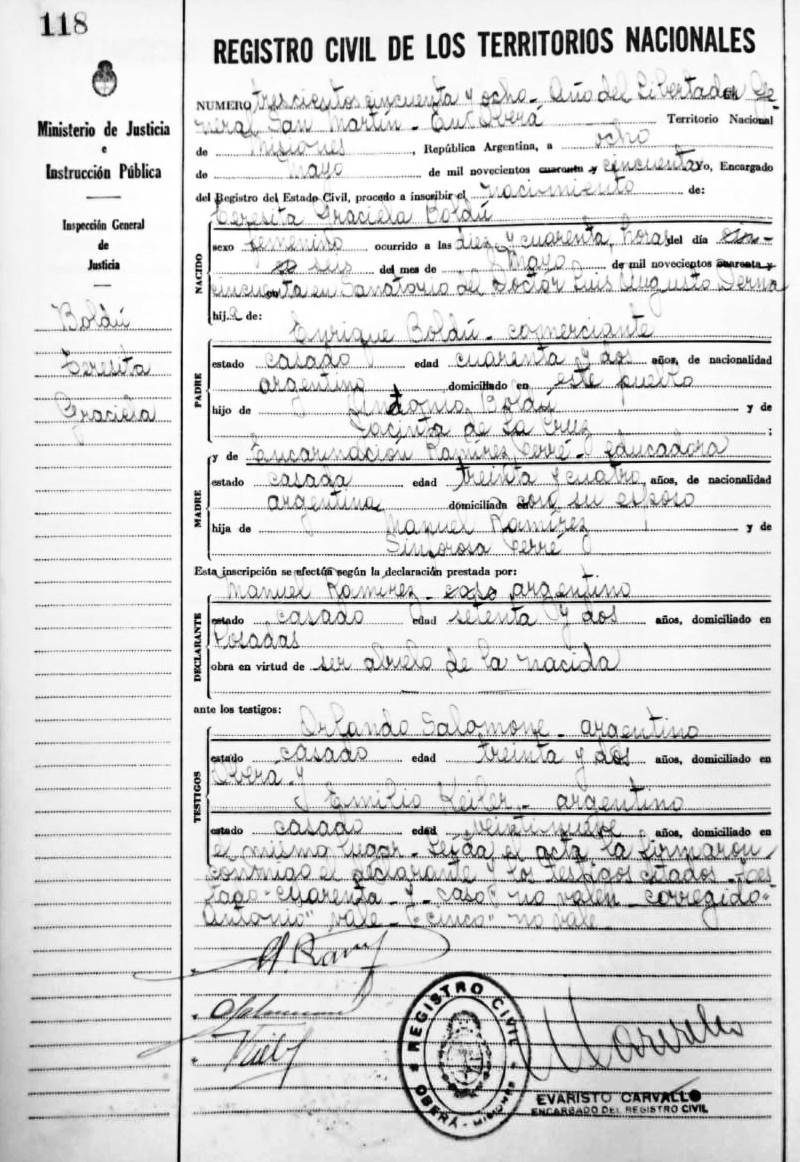 118
Ministerio de Justicia
e
Instrucción Pública
Inspección General
de
Justicia
Boldú
Teresita
Graciela
REGISTRO CIVIL DE LOS TERRITORIOS NACIONALES
NUMERO trescientos cincuenta y ocho - Año del Libertador Ge-
neral San Martín - En Oberá Territorio Nacional
de Misiones, República Argentina, a ocho
de Mayo de mil novecientos cuarenta y cincuenta Yo, Encargado
del Registro del Estado Civil, procedo a inscribir el nacimiento de:
NACIDO
Teresita Graciela Boldú
sexo femenino ocurrido a las diez y cuarenta horas del día cin-
co seis del mes de Mayo de mil novecientos cuarenta y
cincuenta en Sanatorio del Doctor Luis Augusto Derna
hija de:
PADRE
Enrique Boldú - comerciante
estado casado edad cuarenta y dos años, de nacionalidad
argentino domiciliado en este pueblo
hijo de Antonio Boldú y de
Jacinta de la Cruz ;
MADRE
y de Encarnación Ramírez Ferré - educadora
estado casada edad treinta y cuatro años, de nacionalidad
argentina domiciliada con su esposo
hija de Manuel Ramírez y de
Sinforosa Ferré
Esta inscripción se efectúa según la declaración prestada por:
DECLARANTE
Manuel Ramírez - caso argentino
estado casado edad setenta y dos años, domiciliado en
Posadas
obra en virtud de ser abuelo de la nacida
ante los testigos:
TESTIGOS
Orlando Salomone - argentino
estado casado edad treinta y dos años, domiciliado en
Oberá y
Emilio Keiler - argentino
estado casado edad veintinueve años, domiciliado en
el mismo lugar - Leída el acta la firmaron
conmigo el declarante y los testigos citados - Tes
tado - cuarenta - y - caso no valen - corregido "
Antonio" vale - "cinco" no vale -
M. Ramírez
OSalomone
Carvallo
REGISTRO CIVIL
OBERÁ - MISIONES
EVARISTO CARVALLO
ENCARGADO DEL REGISTRO CIVIL